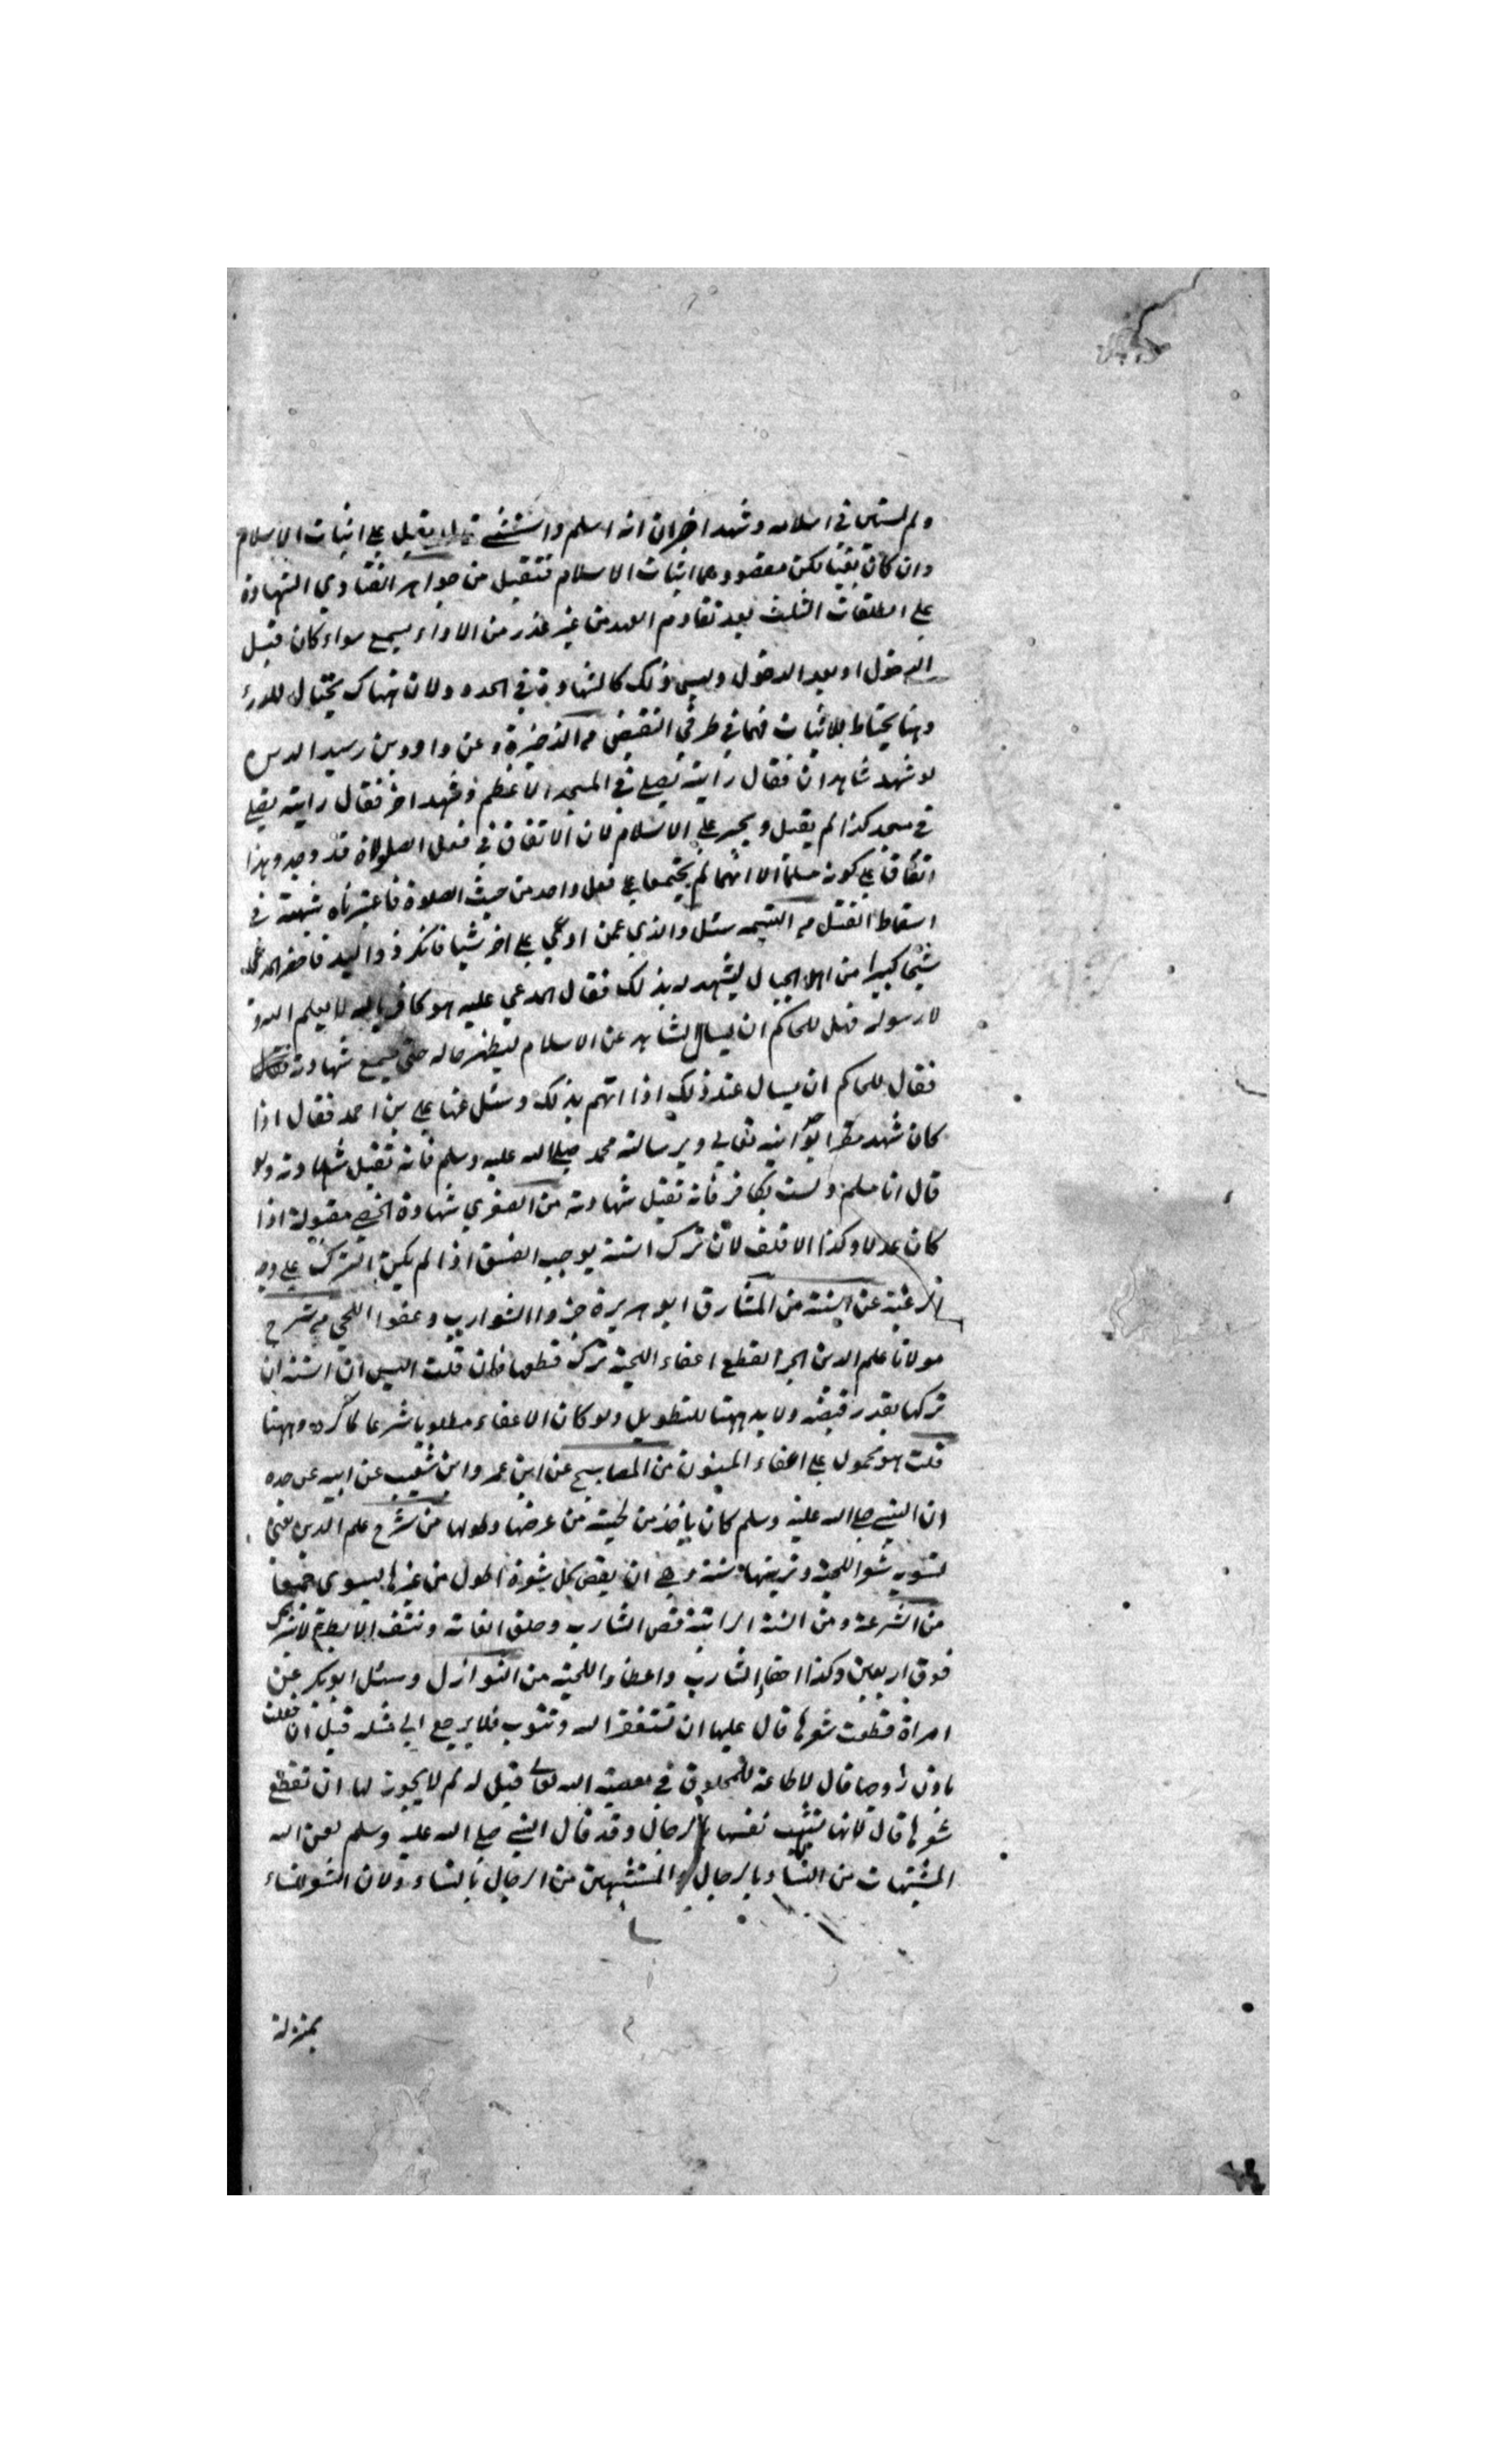 ولم يستثن في اسلامه وشهد اخران انه اسلم واستثنى يقبل على اثبات الاسلام
وان كان نفيا لكن مقصودهما اثبات الاسلام فتقبل من جواهر الفتاوي الشهادة
على المطلقات الثلث بعد تقادم العهد من غير عذر من الاداء يسمع سواء كان قبل
الدخول او بعد الدخول وليس ذلك كالشهادة في الحدود لان هناك يحتال للدرء
وهنا يحتاط للاثبات فهما في طرفي النقيض من الذخيرة وعن داود بن رشيد
لو شهد شاهدان فقال رايته يصلي في المسجد الاعظم وشهد اخر فقال رايته يصلي
في مسجد كذا لم يقبل ويجبر على الاسلام لان الاتفاق في فعل الصلوة قد وجد وهذا
اتفاق على كونه مسلما الا انهما لم يجتمعا على فعل واحد من حيث الصلوة فاعتبرناه شبهة في
اسقاط القتل من اليتيمة سئل والدي عمن ادعى على اخر شيا فانكر ذو اليد فاحضر المدعي
شيخا كبيرا من اهل الجبال ليشهد له بذلك فقال المدعي عليه هو كافر بالله لا يعلم الله و
لا رسوله فهل للحاكم ان يسال الشاهد عن الاسلام ليظهر حاله حتى يسمع شهادته
فقال للحاكم ان يسال عند ذلك اذا اتهم بذلك وسئل عنها علي بن احمد فقال اذا
كان شهد مقرا بوحدانيته تعالى وبرسالة محمد صلى الله عليه وسلم فانه تقبل شهادته ولو
قال انا مسلم ولست بكافر فانه تقبل شهادته من الصغرى شهادة الخصي مقبولة اذا
كان عدلا وكذا الاقلف لان ترك السنة يوجب الفسق اذا لم يكن الترك على وجه
الرغبة عن السنة من المشارق ابو هريرة جزوا الشوارب وعفوا اللحى من شرح
مولانا علم الدين الجز القطع اعفاء اللحية ترك قطعها فان قلت اليس ان السنة ان
تركها بقدر قبضة ولا يد ههنا للتطويل ولو كان الاعفاء مطلوبا شرعا لما كره وههنا
قلت هو محمول على اعفاء المسنون من المصابيح عن ابن عمر وابن شعيب عن ابيه عن جده
ان النبي صلى الله عليه وسلم كان ياخذ من لحيته من عرضها وطولها من شرح علم الدين يعني
تسوية شعر اللحية وتزيينها سنة وهي ان يقص كل شعرة اطول من غيرها ليسوي جميعا
من الشرعة ومن السنة الراتبة قص الشارب وحلق العانة ونتف الابط ولا يترك
فوق اربعين وكذا احفاء الشارب واعفاء اللحية من النوازل وسئل ابو بكر عن
امراة قطعت شعرها قال عليها ان تستغفر الله وتتوب فلا يرجع الى مثله قيل ان فعلت
باذن زوجها قال لا طاعة للمخلوق في معصية الله تعالى قيل له لم لا يجوز لها ان تقطع
شعرها قال لانها تشبهت نفسها بالرجال وقد قال النبي صلى الله عليه وسلم لعن الله
المتشبهات من النساء بالرجال والمتشبهين من الرجال بالنساء ولان الشعر للنساء
بمنزلة